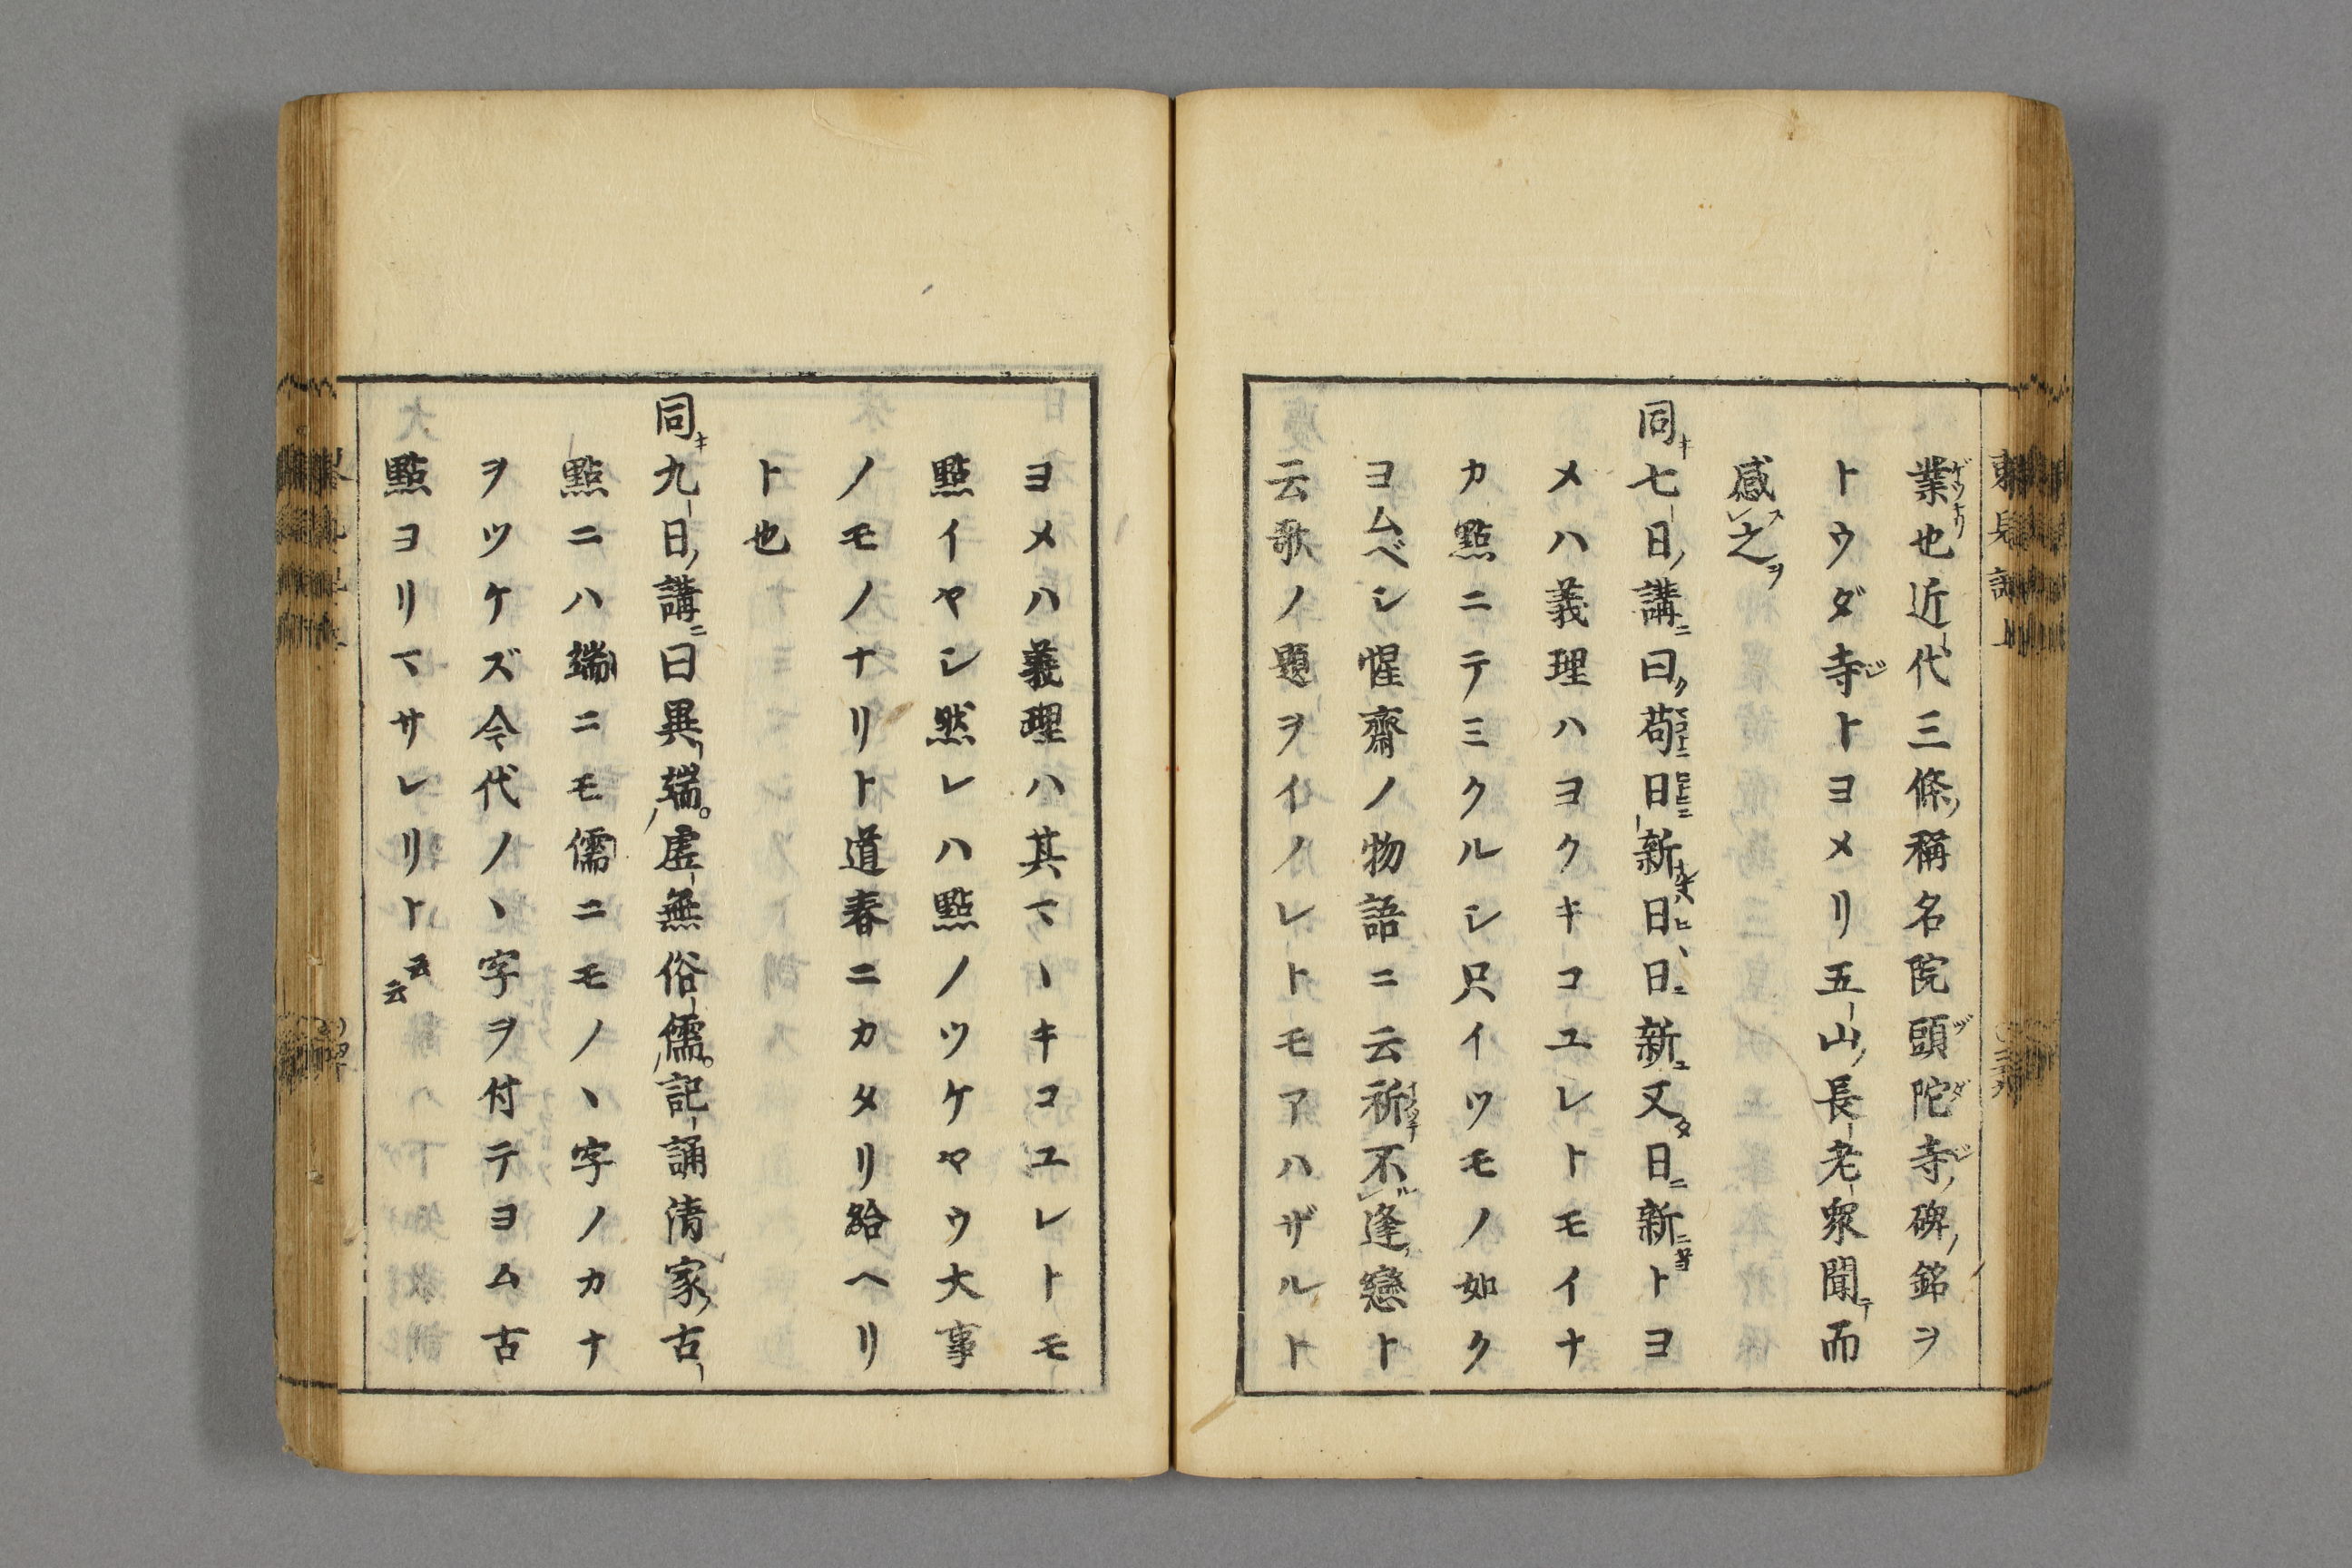 業也近代三條稱名院頭陀寺碑ノ銘ヲ
トウダ寺トヨメリ五山ノ長老衆聞テ而
感之
同七日ノ講ニ曰苟日新日日新又日新トヨ
メハ義理ハヨクキコユレトモイナ
カ點ニテミクルシ只イツモノ如ク
ヨムベシ惺齋ノ物語ニ云祈不逢戀ト
云歌ノ題ヲイノレトモアハザルト
ヨメハ義理ハ其マヽキコユレトモ
點イヤシ然レハ點ノツケヤウ大事
ノモノナリト道春ニカタリ給ヘリ
ト也
同九日ノ講ニ曰異端虚無俗儒記誦清家ノ古
點ニハ端ニモ儒ニモノヽ字ノカナ
ヲツケズ今代ノヽ字ヲ付テヨム古
點ヨリマサレリト云云